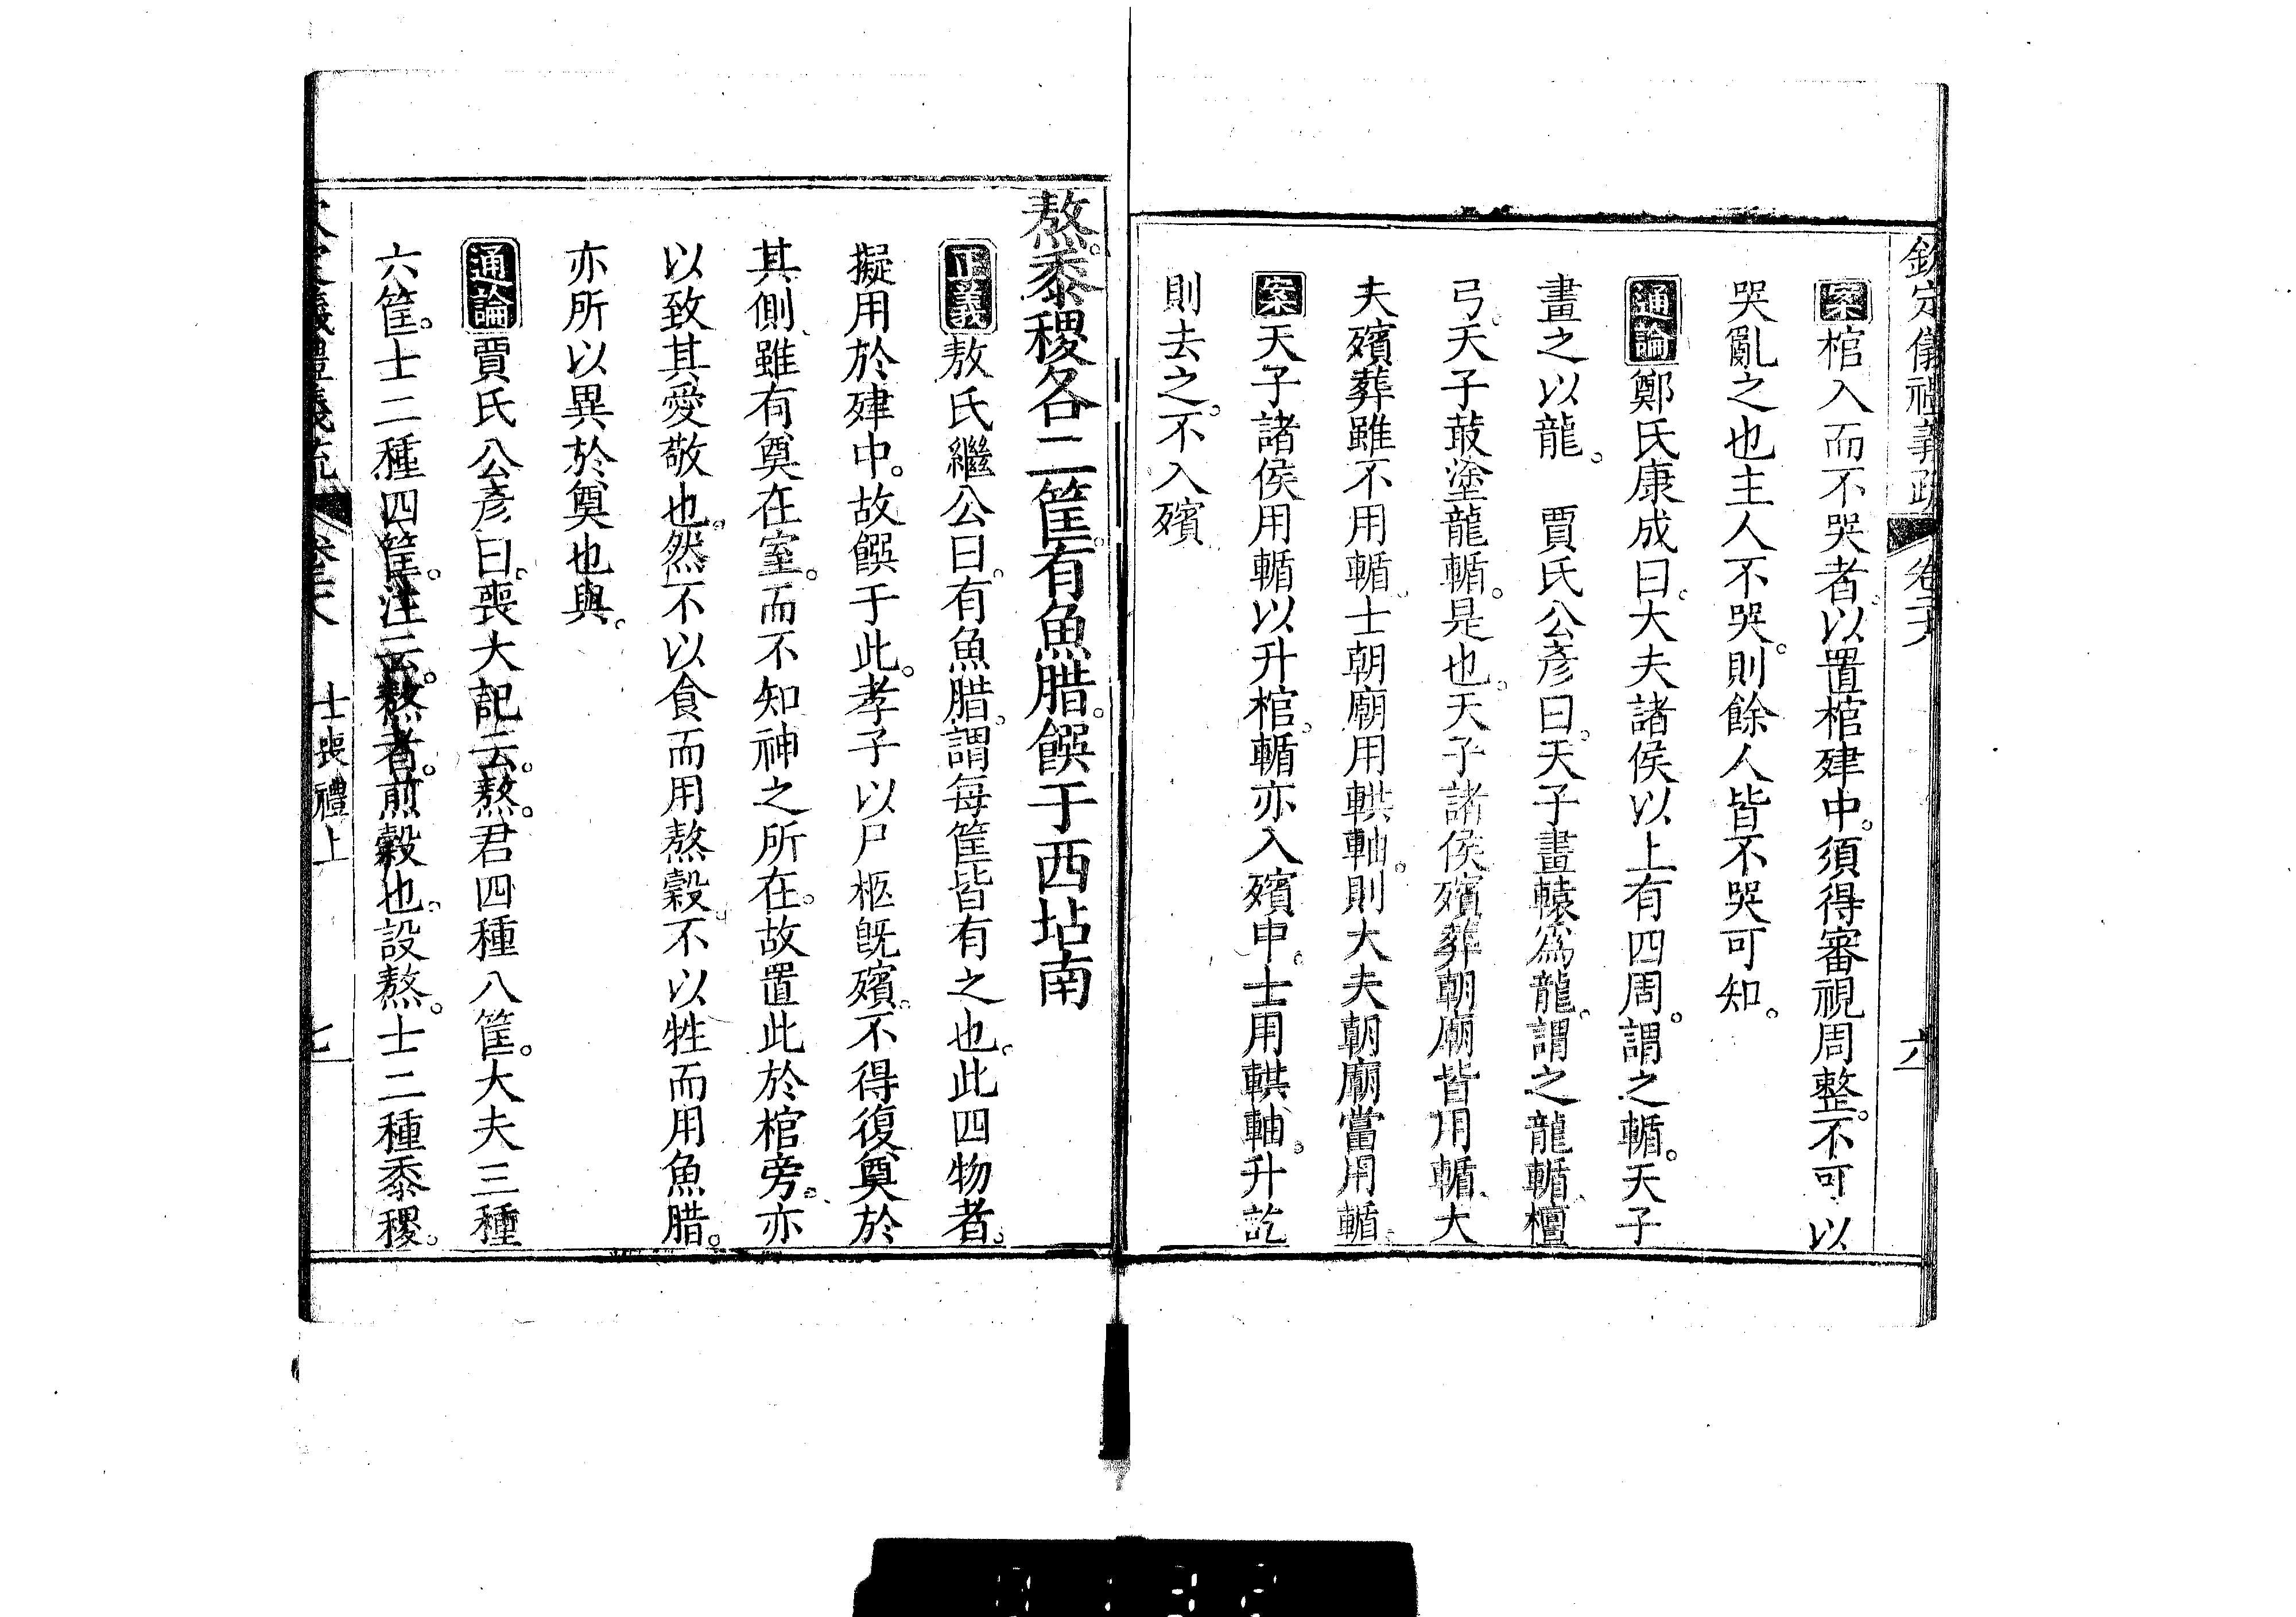 欽定儀禮義疏 卷二十八 六
案棺入而不哭者。以置棺肂中。須得審視周整。不可以
哭亂之也主人不哭。則餘人皆不哭可知。
通論鄭氏康成曰。大夫諸侯以上有四周。謂之輴。天子
畫之以龍。 賈氏公彥曰。天子畫轅為龍。謂之龍輴、檀
弓。天子菆塗龍輴。是也。天子諸侯殯葬朝廟皆用輴、大
夫殯葬雖不用輴。士朝廟用輁軸。則大夫朝廟當用輴。
案天子諸侯用輴以升棺。輴亦入殯中。士用輁軸。升訖
則去之。不入殯
熬。黍稷各二筐。有魚腊。饌于西坫南
正義敖氏繼公曰。有魚腊。謂每筐皆有之也。此四物者。
擬用於肂中。故饌于此。孝子以尸柩既殯。不得復奠於
其側、雖有奠在室。而不知神之所在。故置此於棺旁。亦
以致其愛敬也。然不以食而用熬穀。不以牲而用魚腊。
亦所以異於奠也與。
通論賈氏公彥曰。喪大記云。熬。君四種八筐。大夫三種
六筐。士二種四筐。注云。熬者。煎穀也。設熬。士二種黍稷。
儀禮義疏 士喪禮上 七